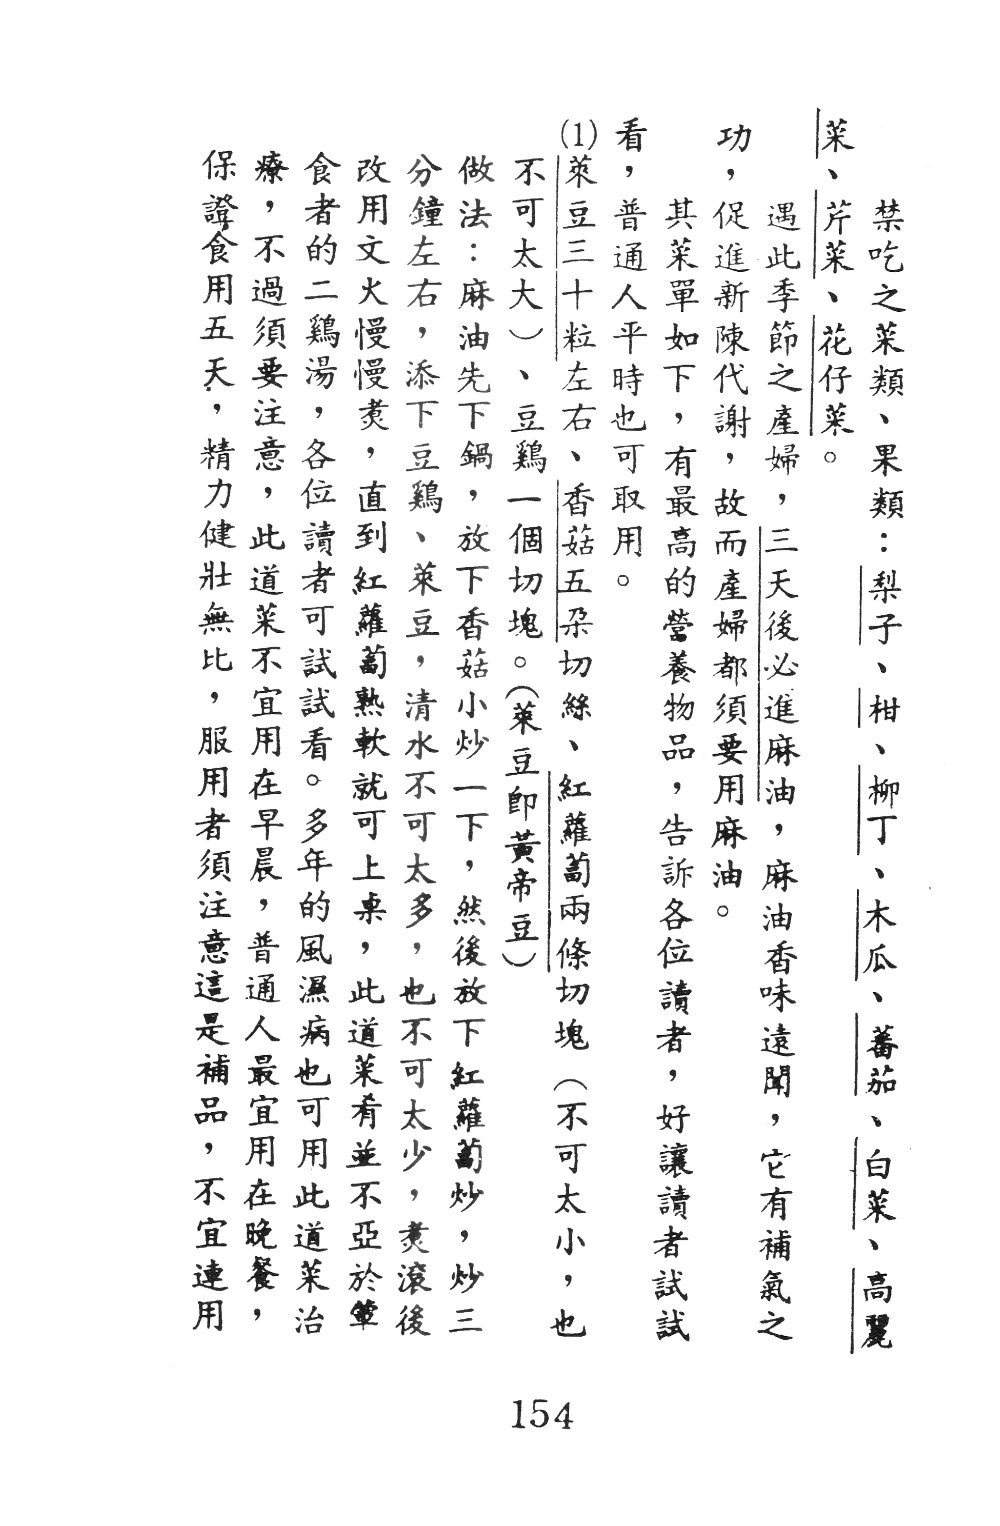 禁吃之菜類、果類：梨子、柑、柳丁、木瓜、蕃茄、白菜、高麗
菜、芹菜、花仔菜。
遇此季節之產婦，三天後必進麻油，麻油香味遠聞，它有補氣之
功，促進新陳代謝，故而產婦都須要用麻油。
其菜單如下，有最高的營養物品，告訴各位讀者，好讓讀者試試
看，普通人平時也可取用。
(1)萊豆三十粒左右、香菇五朶切絲、紅蘿蔔兩條切塊（不可太小，也
不可太大）、豆鷄一個切塊。（萊豆卽黃帝豆）
做法：麻油先下鍋，放下香菇小炒一下，然後放下紅蘿蔔炒，炒三
分鐘左右，添下豆鷄、萊豆，清水不可太多，也不可太少，煑滾後
改用文火慢慢煑，直到紅蘿蔔熟軟就可上桌，此道菜肴並不亞於葷
食者的二鷄湯，各位讀者可試試看。多年的風濕病也可用此道菜治
療，不過須要注意，此道菜不宜用在早晨，普通人最宜用在晚餐，
保證食用五天，精力健壯無比，服用者須注意這是補品，不宜連用
154